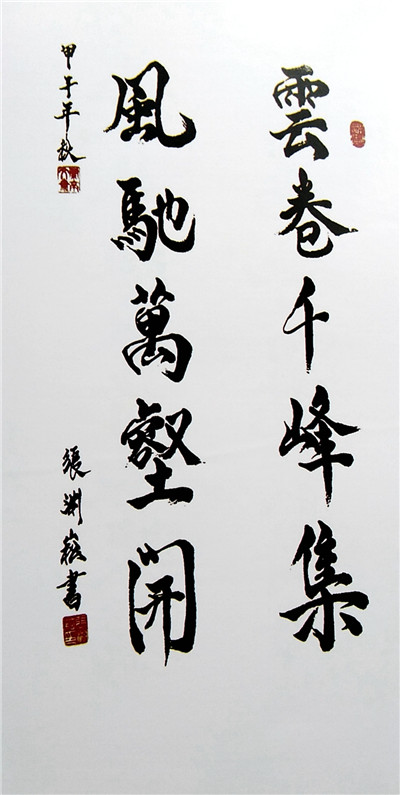 雲卷千峰集
風馳萬壑開
甲午年秋
張渊嶽書